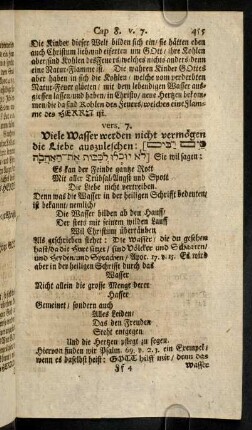 Cap 8. v. 7. 415
Die Kinder dieser Welt bilden sich ein/ sie hätten eben
auch Christum lieb und eiferten um GOtt; ihre Kohlen
aber sind Kohlen des Feuers/ welches nichts anders denn eine
Natur-Flamme ist. Die wahren Kinder GOttes
aber haben in sich die Kohlen/ welche vom verderbten
Natur-Feuer abgethan/ mit dem lebendigen Wasser aus-
giessen lassen und haben in Christo/ neue Hertzen bekom-
men/ die da sind Kohlen des Feuers/ welches eine Flamme
des HERRN ist.
vers. 7.
Viele Wasser werden nicht vermögen
die Liebe auszuleschen:
לא יוכלו לכבות את־האהבה Sie wil sagen:
Es kan der Feinde gantze Rott
Mit aller Trübsal Angst und Spott
Die Liebe nicht vertreiben.
Denn was die Wasser in der heiligen Schrifft bedeuten/
ist bekant; nemlich/
Die Wasser bilden ab den Hauff/
Der stets mit seinem wilden Lauff
Wil Christum überräuben.
Als geschrieben stehet: Die Wasser/ die du gesehen
hast/ da die Hure sitzet/ sind Völcker und Schaaren/
und Heyden und Sprachen/ Apoc. 17. v. 15. Es wird
aber in der heiligen Schrifft durch das
Wasser
Nicht allein die grosse Menge derer
Hasser
Gemeinet/ sondern auch
Alles Leiden/
Das den Freuden
Steht entgegen
Und die Hertzen pflegt zu fegen.
Hiervon finden wir Psalm. 69. v. 2. 3. ein Exempel/
wenn es daselbst heist: GOTT hilff mir/ denn das
Ff 4 Wasser